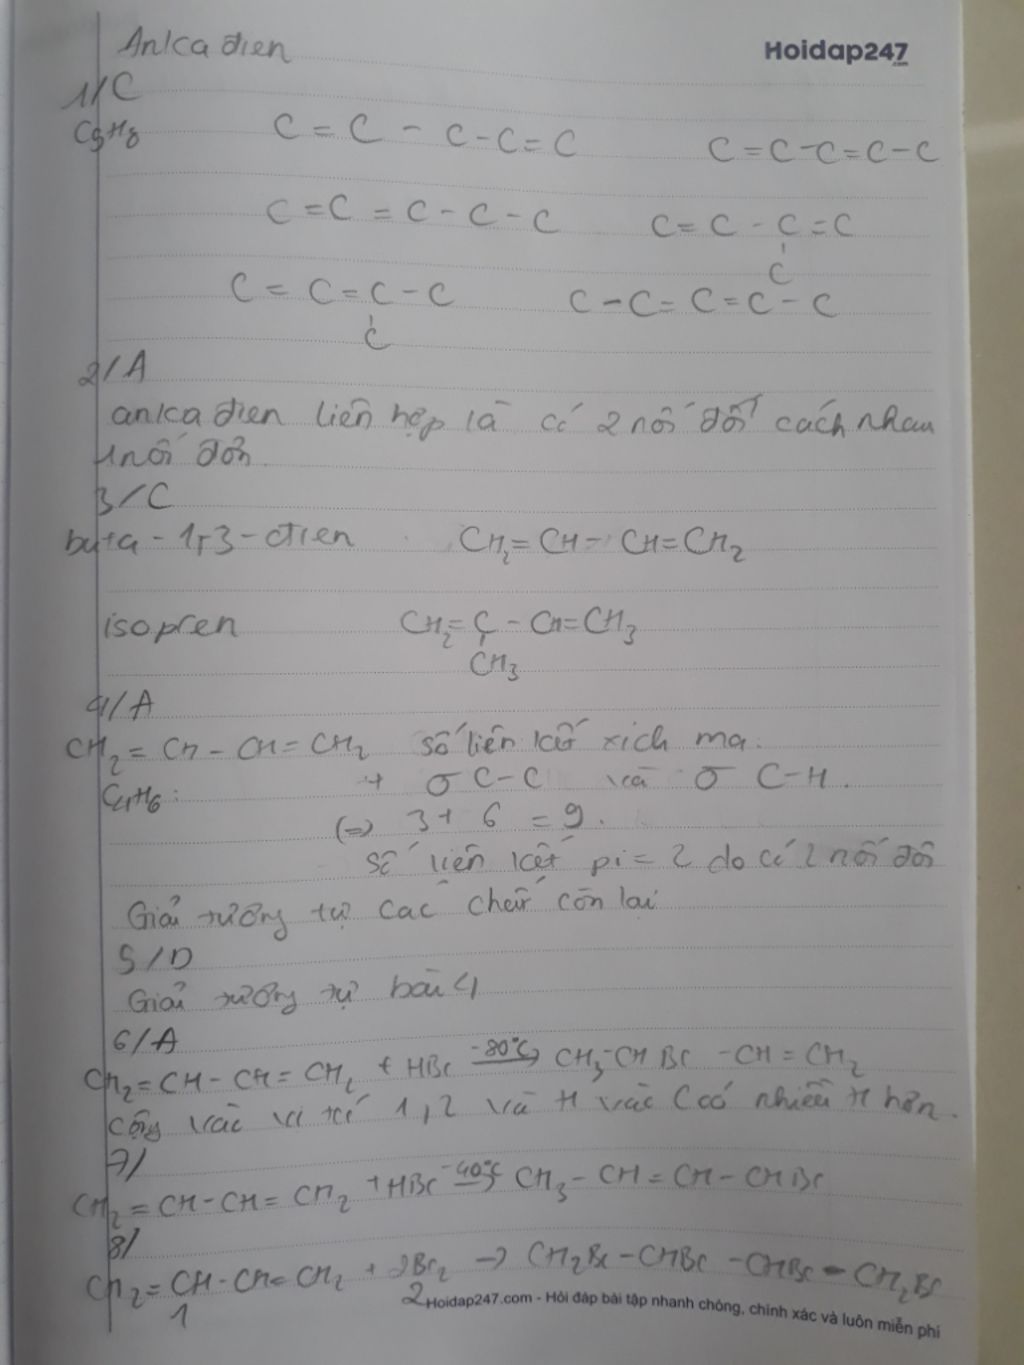 Ankađien
Hoidap247.com
1/C
C5H8
C = C - C - C = C
C = C - C = C - C
C = C = C - C - C
C = C - C = C
C
C = C = C - C
C
C - C = C = C - C
2/A
ankađien liên hợp là có 2 nối đôi cách nhau
1 nối đơn.
3/C
buta - 1,3 - đien CH2 = CH - CH = CH2
isopren CH2 = C - CH = CH3
CH3
4/A
CH2 = CH - CH = CH2 số liên kết xích ma.
C4H6: + σ C - C và σ C - H.
(=) 3 + 6 = 9.
Số liên kết pi = 2 do có 2 nối đôi
Giải tương tự các chất còn lại
5/D
Giải tương tự bài 4
6/A
CH2 = CH - CH = CH2 + HBr -80°C → CH3 - CHBr - CH = CH2
cộng vào vị trí 1,2 và H vào C có nhiều H hơn.
7/
CH2 = CH - CH = CH2 + HBr -40°C → CH3 - CH = CH - CHBr
8/
CH2 = CH - CH = CH2 + 2Br2 → CH2Br - CHBr - CHBr - CH2Br
1 2
Hoidap247.com - Hỏi đáp bài tập nhanh chóng, chính xác và luôn miễn phí